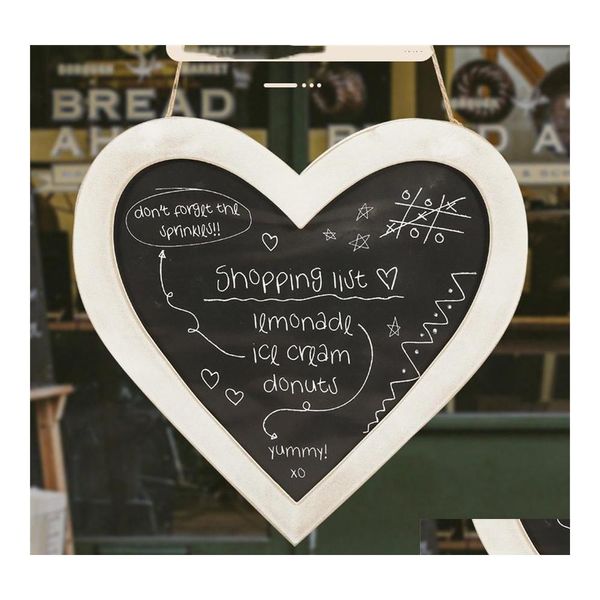 BOROUGH MARKET
BREAD
AH
D A
don't forget the
sprinkles!!
Shopping list
lemonade
ice cream
donuts
yummy!
xo